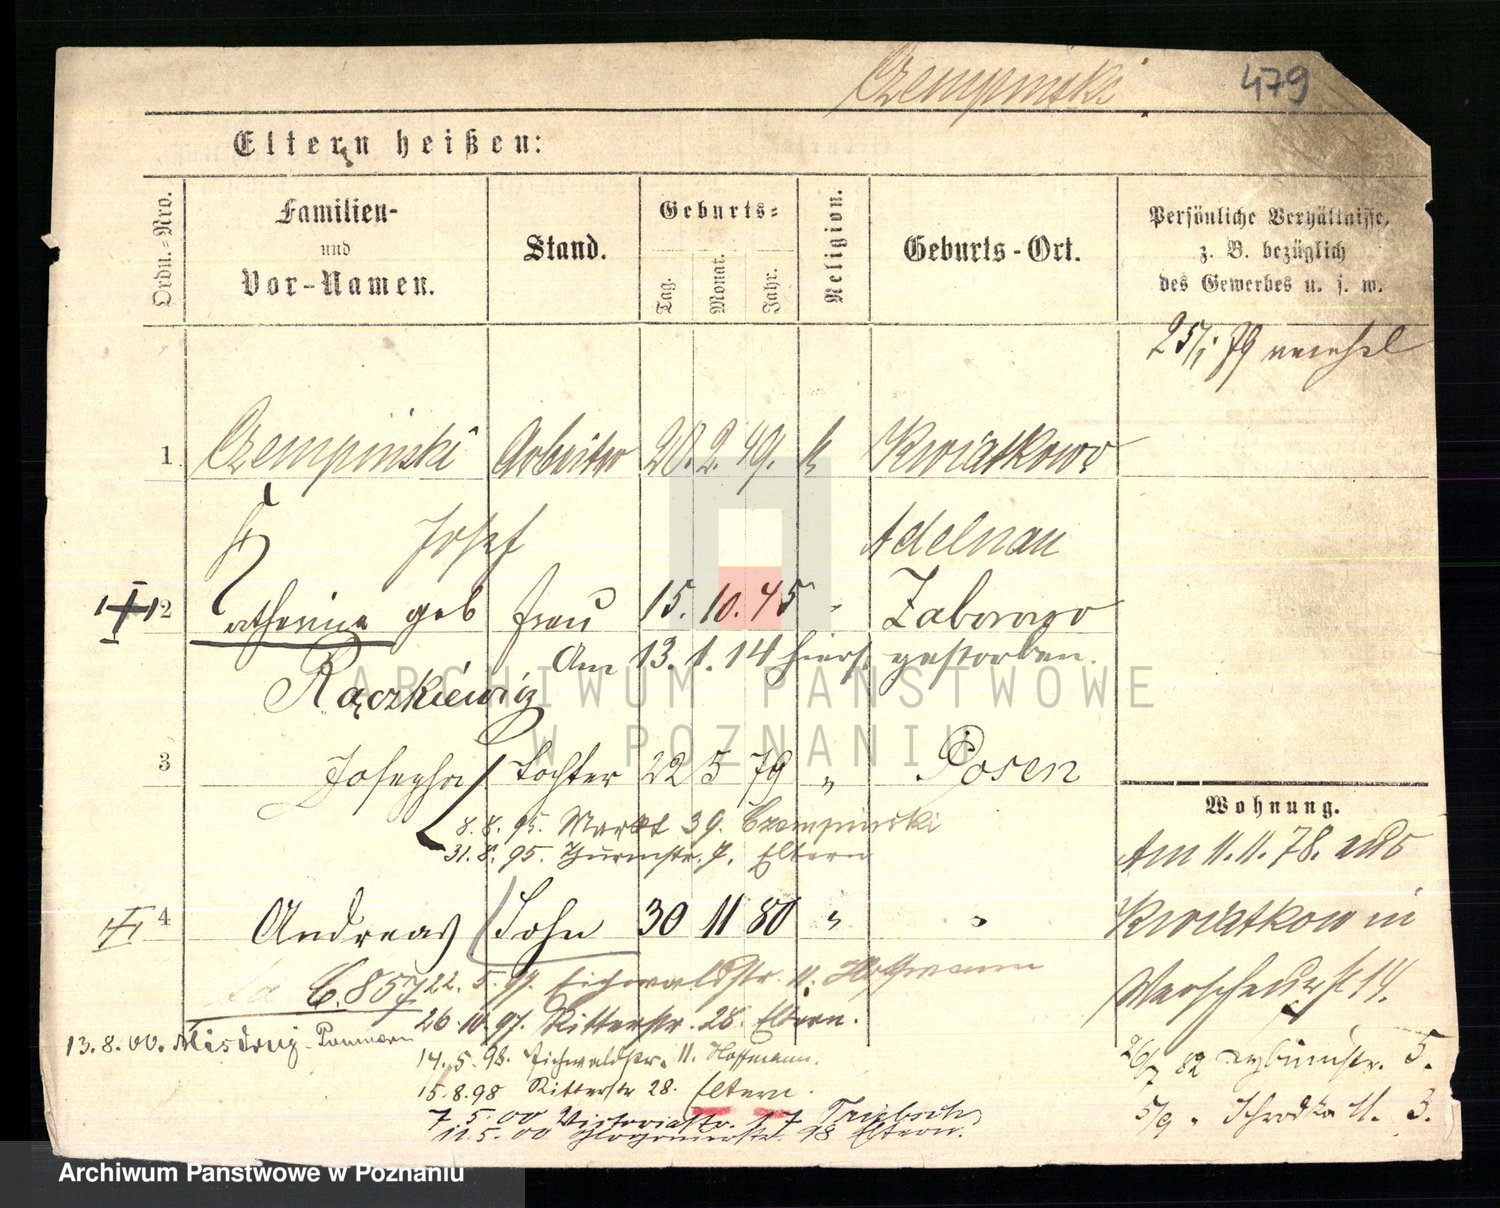 Czempinski 479
Eltern heißen:
Ordn.-Nro. Familien- und Vor-Namen. Stand. Geburts- Tag. Monat. Jahr. Religion. Geburts-Ort. Persönliche Verhältnisse, z. B. bezüglich des Gewerbes u. s. w.
25/1 79
1 Czempinski Arbeiter 20. 2. 49. k Kwiatkowo
Josef Adelnau
2 Katherina geb Frau 15. 10. 45 "
Am 13. 1. 14 hiers. gestorben.
Rączkiewicz
3 Josepha Tochter 22 5 79 " Posen
Wohnung.
8. 8. 95. Markt 39. Czempinski
31. 8. 95. Thurmstr. 7. Eltern
Am 11. 11. 78. aus
4 Andreas Sohn 30 11 80 " "
Kwiatkow in
22. 5. 97. Eichwaldstr. 11. Hoffmann
6.857
Warschauerst 14.
26. 10. 97. Ritterstr. 28. Eltern.
13. 8. 00. Misdroy - Pommern
14. 5. 98. Eichwaldstr. 11. Hoffmann.
26/7 82 5.
15. 8. 98 Ritterstr 28. Eltern.
5/9. Schrodka 11. 3.
7. 5. 00 Victoriastr. 17
11. 5. 00 18 Eltern.
ARCHIWUM PAŃSTWOWE
W POZNANIU
Archiwum Państwowe w Poznaniu